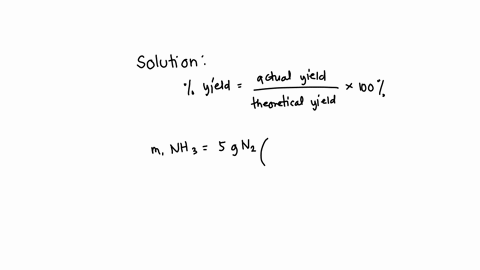 Solution:
% yield = actual yield / theoretical yield × 100%
m, NH3 = 5 g N2 (